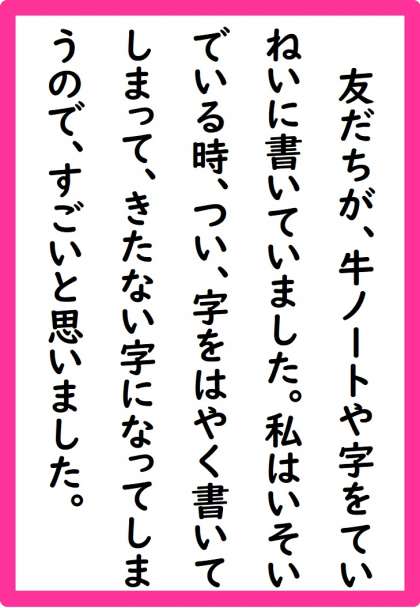 友だちが、牛ノートや字をてい
ねいに書いていました。私はいそい
でいる時、つい、字をはやく書いて
しまって、きたない字になってしま
うので、すごいと思いました。